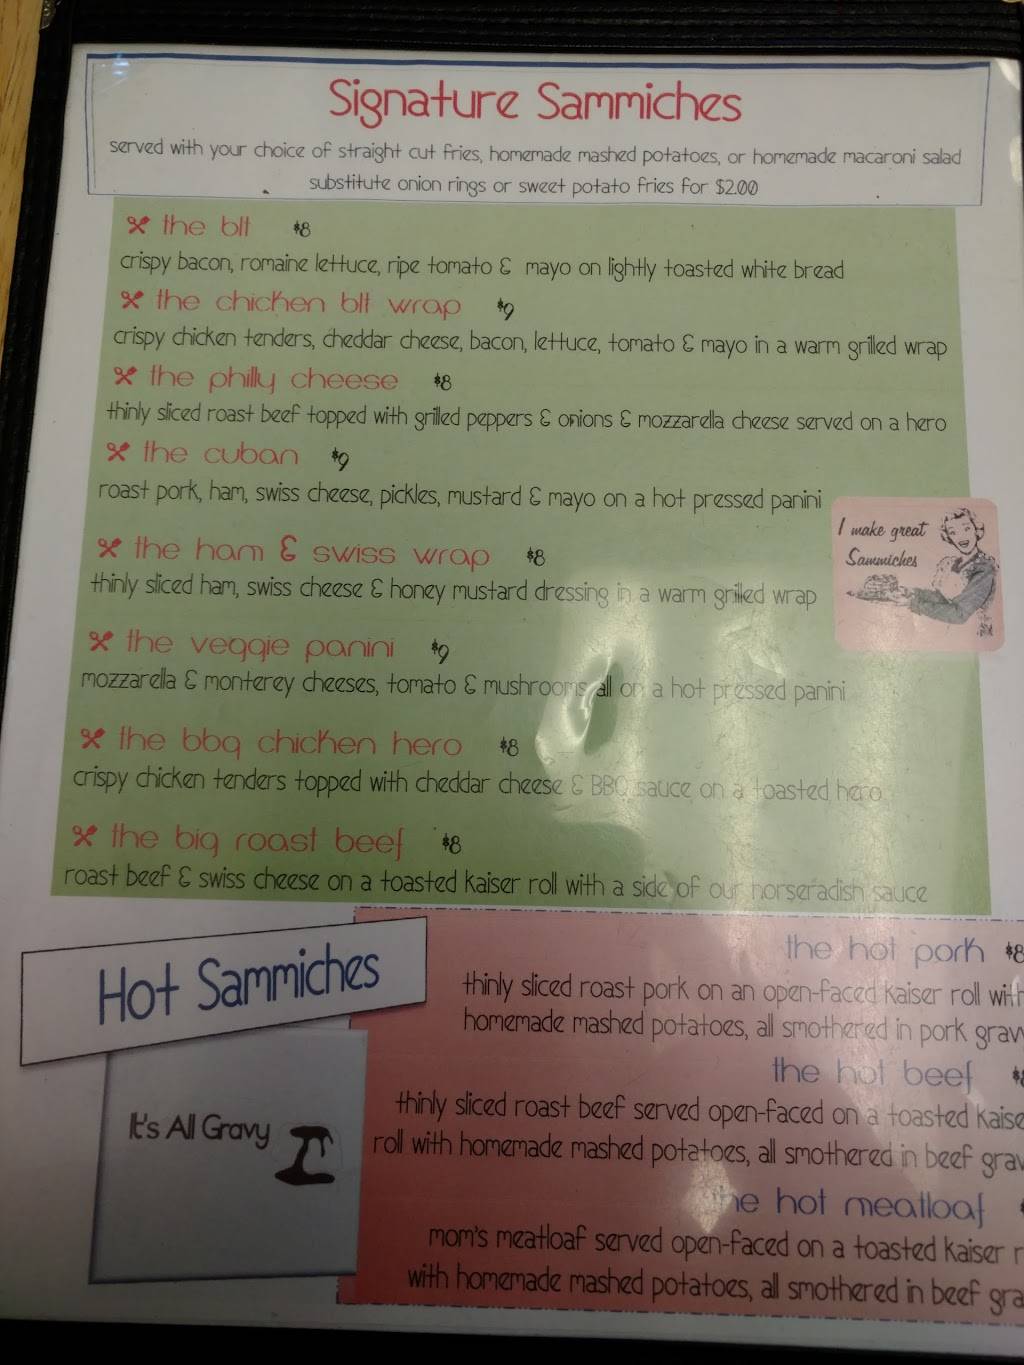 Signature Sammiches
served with your choice of straight cut fries, homemade mashed potatoes, or homemade macaroni salad
substitute onion rings or sweet potato fries for $2.00
the blt $8
crispy bacon, romaine lettuce, ripe tomato & mayo on lightly toasted white bread
the chicken blt wrap $9
crispy chicken tenders, cheddar cheese, bacon, lettuce, tomato & mayo in a warm grilled wrap
the philly cheese $8
thinly sliced roast beef topped with grilled peppers & onions & mozzarella cheese served on a hero
the cuban $9
roast pork, ham, swiss cheese, pickles, mustard & mayo on a hot pressed panini
I make great
Sammiches
the ham & swiss wrap $8
thinly sliced ham, swiss cheese & honey mustard dressing in a warm grilled wrap
the veggie panini $9
mozzarella & monterey cheeses, tomato & mushrooms all on a hot pressed panini
the bbq chicken hero $8
crispy chicken tenders topped with cheddar cheese & BBQ sauce on a toasted hero
the big roast beef $8
roast beef & swiss cheese on a toasted kaiser roll with a side of our horseradish sauce
Hot Sammiches
It's All Gravy
the hot pork $8
thinly sliced roast pork on an open-faced kaiser roll with
homemade mashed potatoes, all smothered in pork grav
the hot beef
thinly sliced roast beef served open-faced on a toasted kaise
roll with homemade mashed potatoes, all smothered in beef grav
the hot meatloaf
mom's meatloaf served open-faced on a toasted kaiser r
with homemade mashed potatoes, all smothered in beef gra